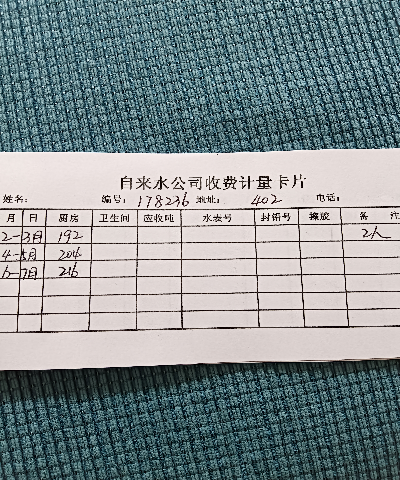 自来水公司收费计量卡片
姓名: 编号: 178236 地址: 402 电话:
月 日 厨房 卫生间 应收吨 水表号 封铅号 换胶 备 注
2-3月 192 2人
4-5月 204
6-7月 216